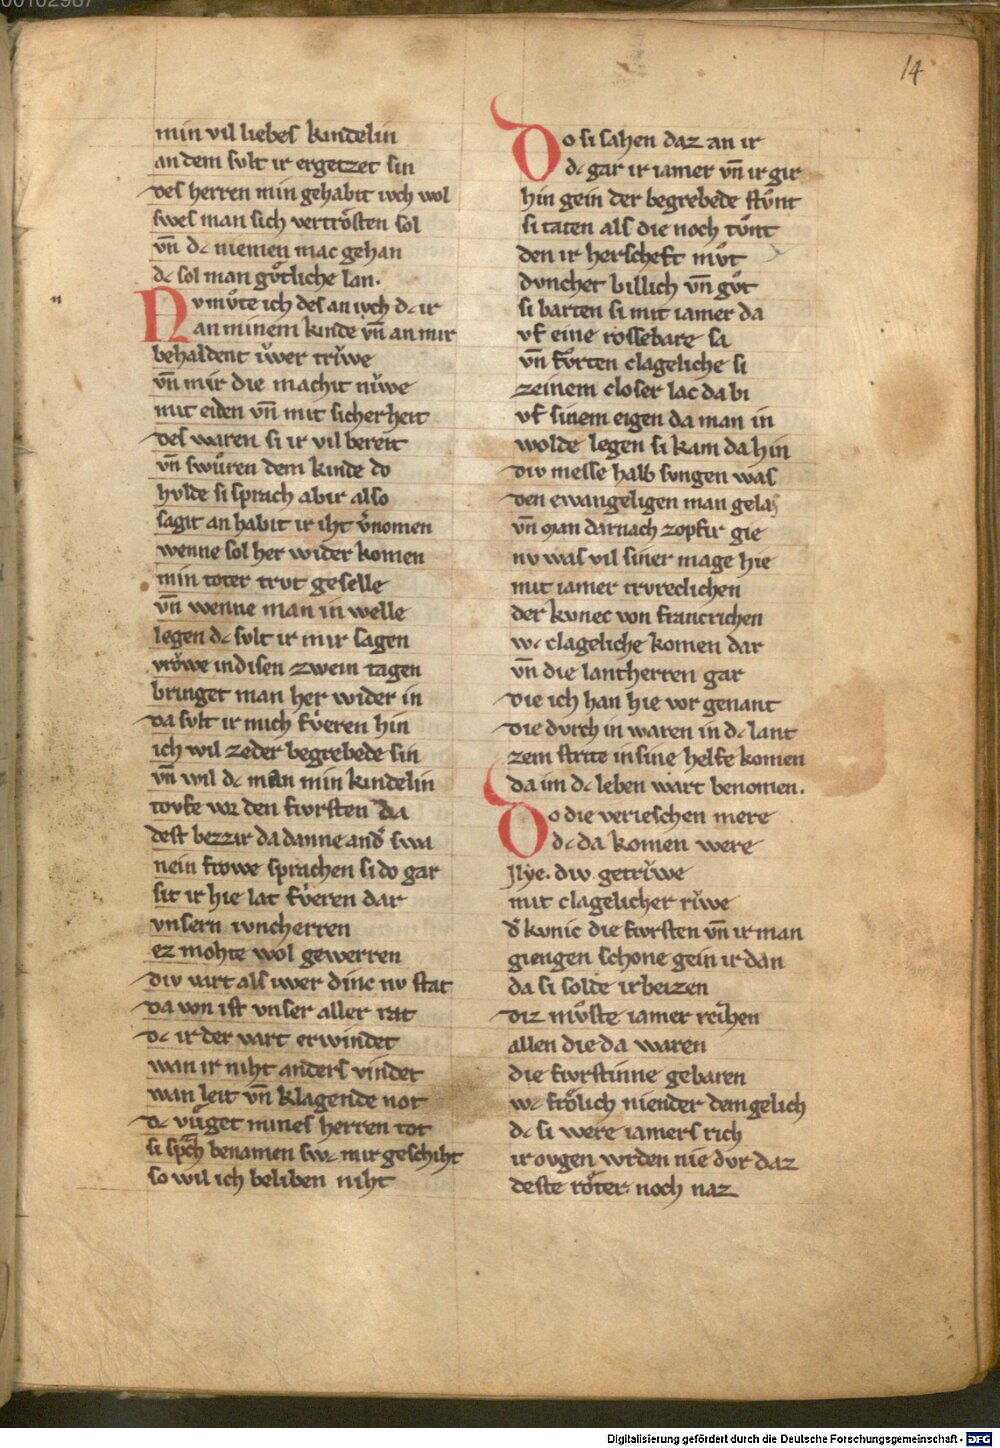 00102987
14
min vil liebes kindelin
an dem sult ir ergetzet sin
des herren min gehabit iuch wol
swes man sich vertrósten sol
vn̄ dc niemen mac gehan
dc sol man gůtliche lan.
Nv můte ich des an ivch dc ir
an minem kinde vn̄ an mir
behaldent ůwer trůwe
vn̄ mir die machit nůwe
mit eiden vn̄ mit sicherheit
des waren si ir vil bereit
vn̄ swůren dem kinde do
hvlde si sprach abir also
sagit an habit ir iht v̄nomen
wenne sol her wider komen
min toter trvt geselle
vn̄ wenne man in welle
legen dc svlt ir mir sagen
vrówe in disen zwein tagen
bringet man her wider in
da svlt ir mich fv̊eren hin
ich wil zeder begrebede sin
vn̄ wil dc man min kindelin
tovfe vor den fvrsten da
dest bezzir da danne and̄ swa
nein frowe sprachen si do gar
sit ir hie lat fv̊eren dar
vnsern iuncherren
ez mohte wol gewerren
div vart als iwer dinc nv stat
da von ist vnser aller rat
dc ir der vart erwindet
wan ir niht anders vindet
wan leit vn̄ klagende not
dc vůget mines herren tot
si sp̄ch benamen swc mir geschiht
so wil ich beliben niht
Do si sahen daz an ir
dc gar ir iamer vn̄ ir gir
hin gein der begrebede stv̊nt
si taten als die noch tv̊nt
den ir herscheft mv̊t
dvnchet billich vn̄ gv̊t
si barten si mit iamer da
vf eine rossebare sa
vn̄ fv̊rten clageliche si
zeinem closer lac da bi
vf sinem eigen da man in
wolde legen si kam da hin
div messe halb svngen was
den ewangeligen man gelas
vn̄ man darnach zopfir gie
nv was vil siner mage hie
mit iamer trvreclichen
der kvnec von francrichen
wc clageliche komen dar
vn̄ die lantherren gar
die ich han hie vor genant
die dvrch in waren in dc lant
zem strite in sine helfe komen
da im dc leben wart benomen.
Do die verieschen mere
dc da komen were
Jlye. div getrůwe
mit clagelicher růwe
d̄ kvnic die fvrsten vn̄ ir man
giengen schone gein ir dan
da si solde irbeizen
diz mv̊ste iamer reihen
allen die da waren
die fvrstinne gebaren
wc frólich niender dem gelich
dc si were iamers rich
ir ovgen wrden nie dvr daz
deste róter noch naz
Digitalisierung gefördert durch die Deutsche Forschungsgemeinschaft - DFG